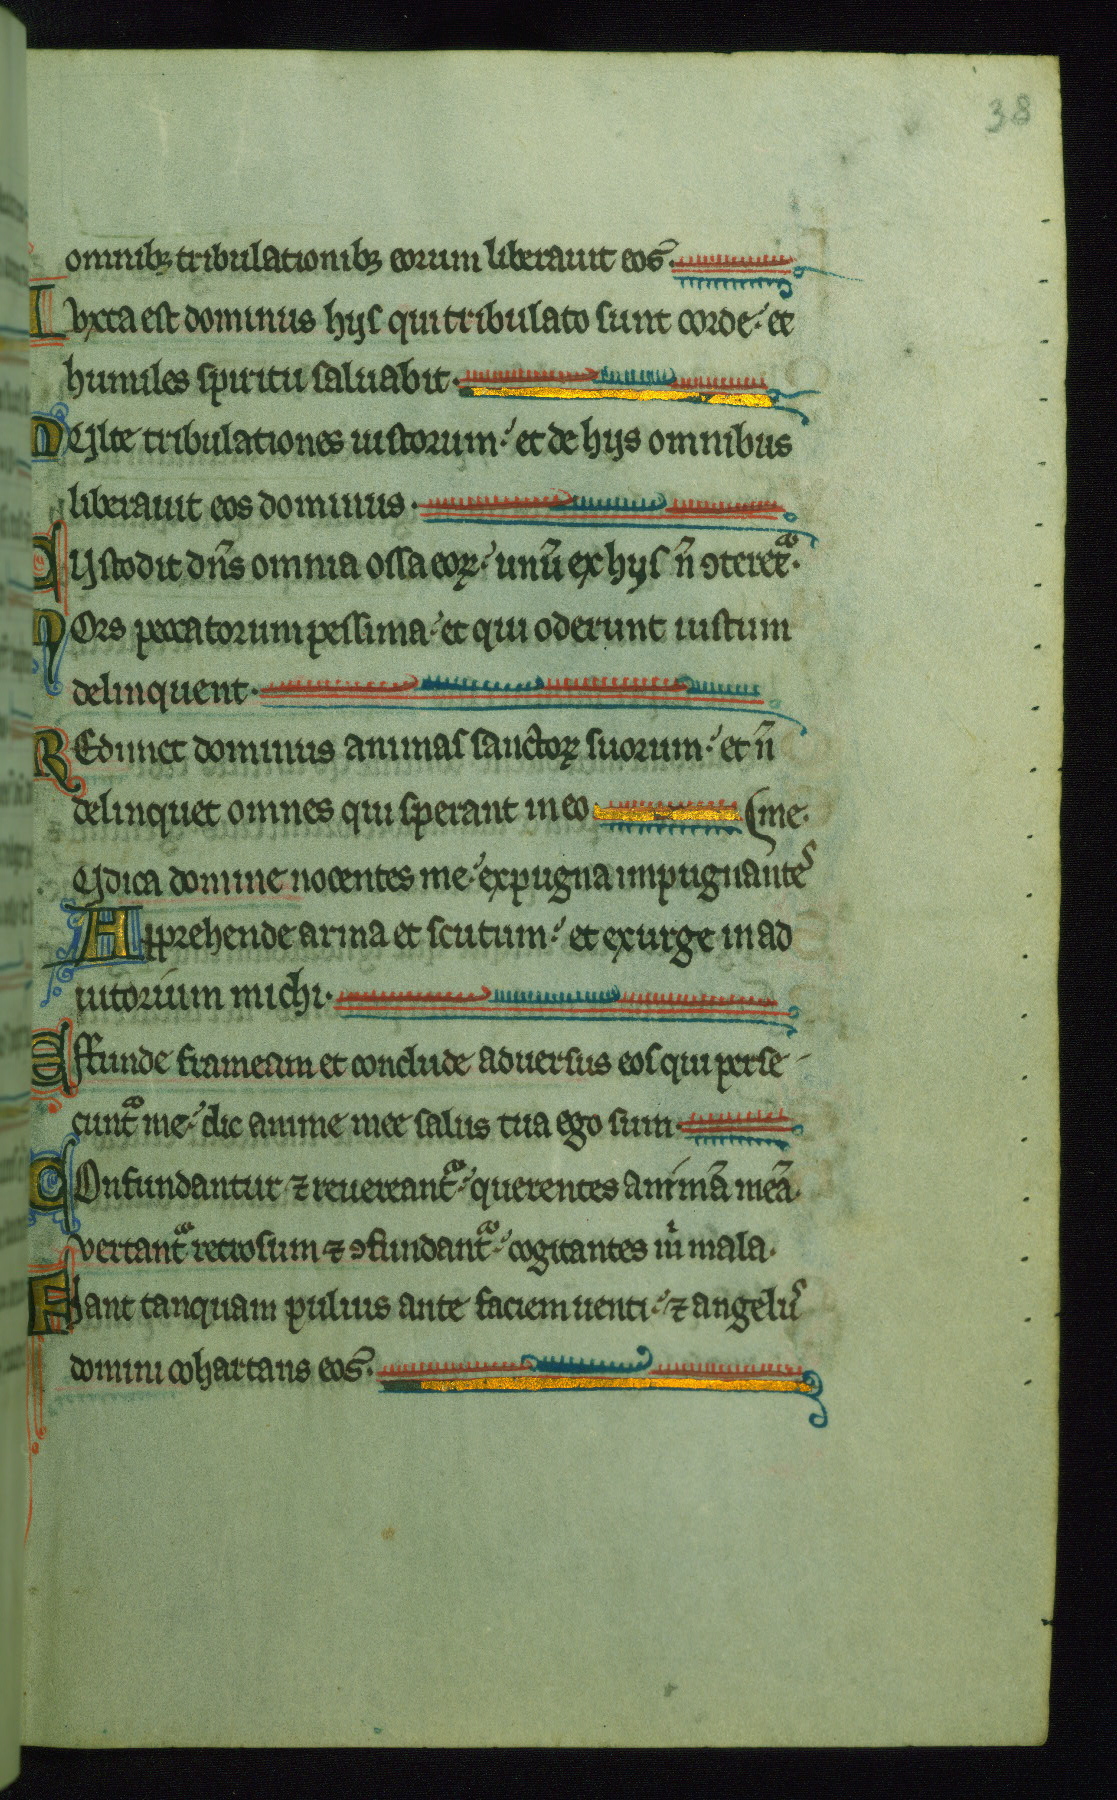 38
omnibꝫ tribulationibꝫ eorum liberauit eos̄.
Iuxta est dominus hijs qui tribulato sunt corde. et
humiles spiritu saluabit.
MUlte tribulationes iustorum. et de hijs omnibus
liberauit eos dominus.
CUstodit dn̄s omnia ossa eoꝝ. unū ex hijs n̄ ꝯteretᷓ.
MOrs peccatorum pessima. et qui oderunt iustum
delinquent.
REdimet dominus animas sanctoꝝ suorum. et n̄
delinquet omnes qui sperant in eo (me.
Udica domine nocentes me. expugna impugnantes
Apprehende arma et scutum. et exurge in ad
iutorium michi.
Effunde frameam et conclude aduersus eos qui perse-
cuntᷓ me. dic anime mee salus tua ego sum.
COnfundantur ⁊ reuereantᷓ. querentes animā meā.
vertantᷓ retrosum ⁊ ꝯfundantᷓ. cogitantes m̍ mala.
Fiant tanquam puluis ante faciem uenti. ⁊ angelus
domini cohartans eos̄.